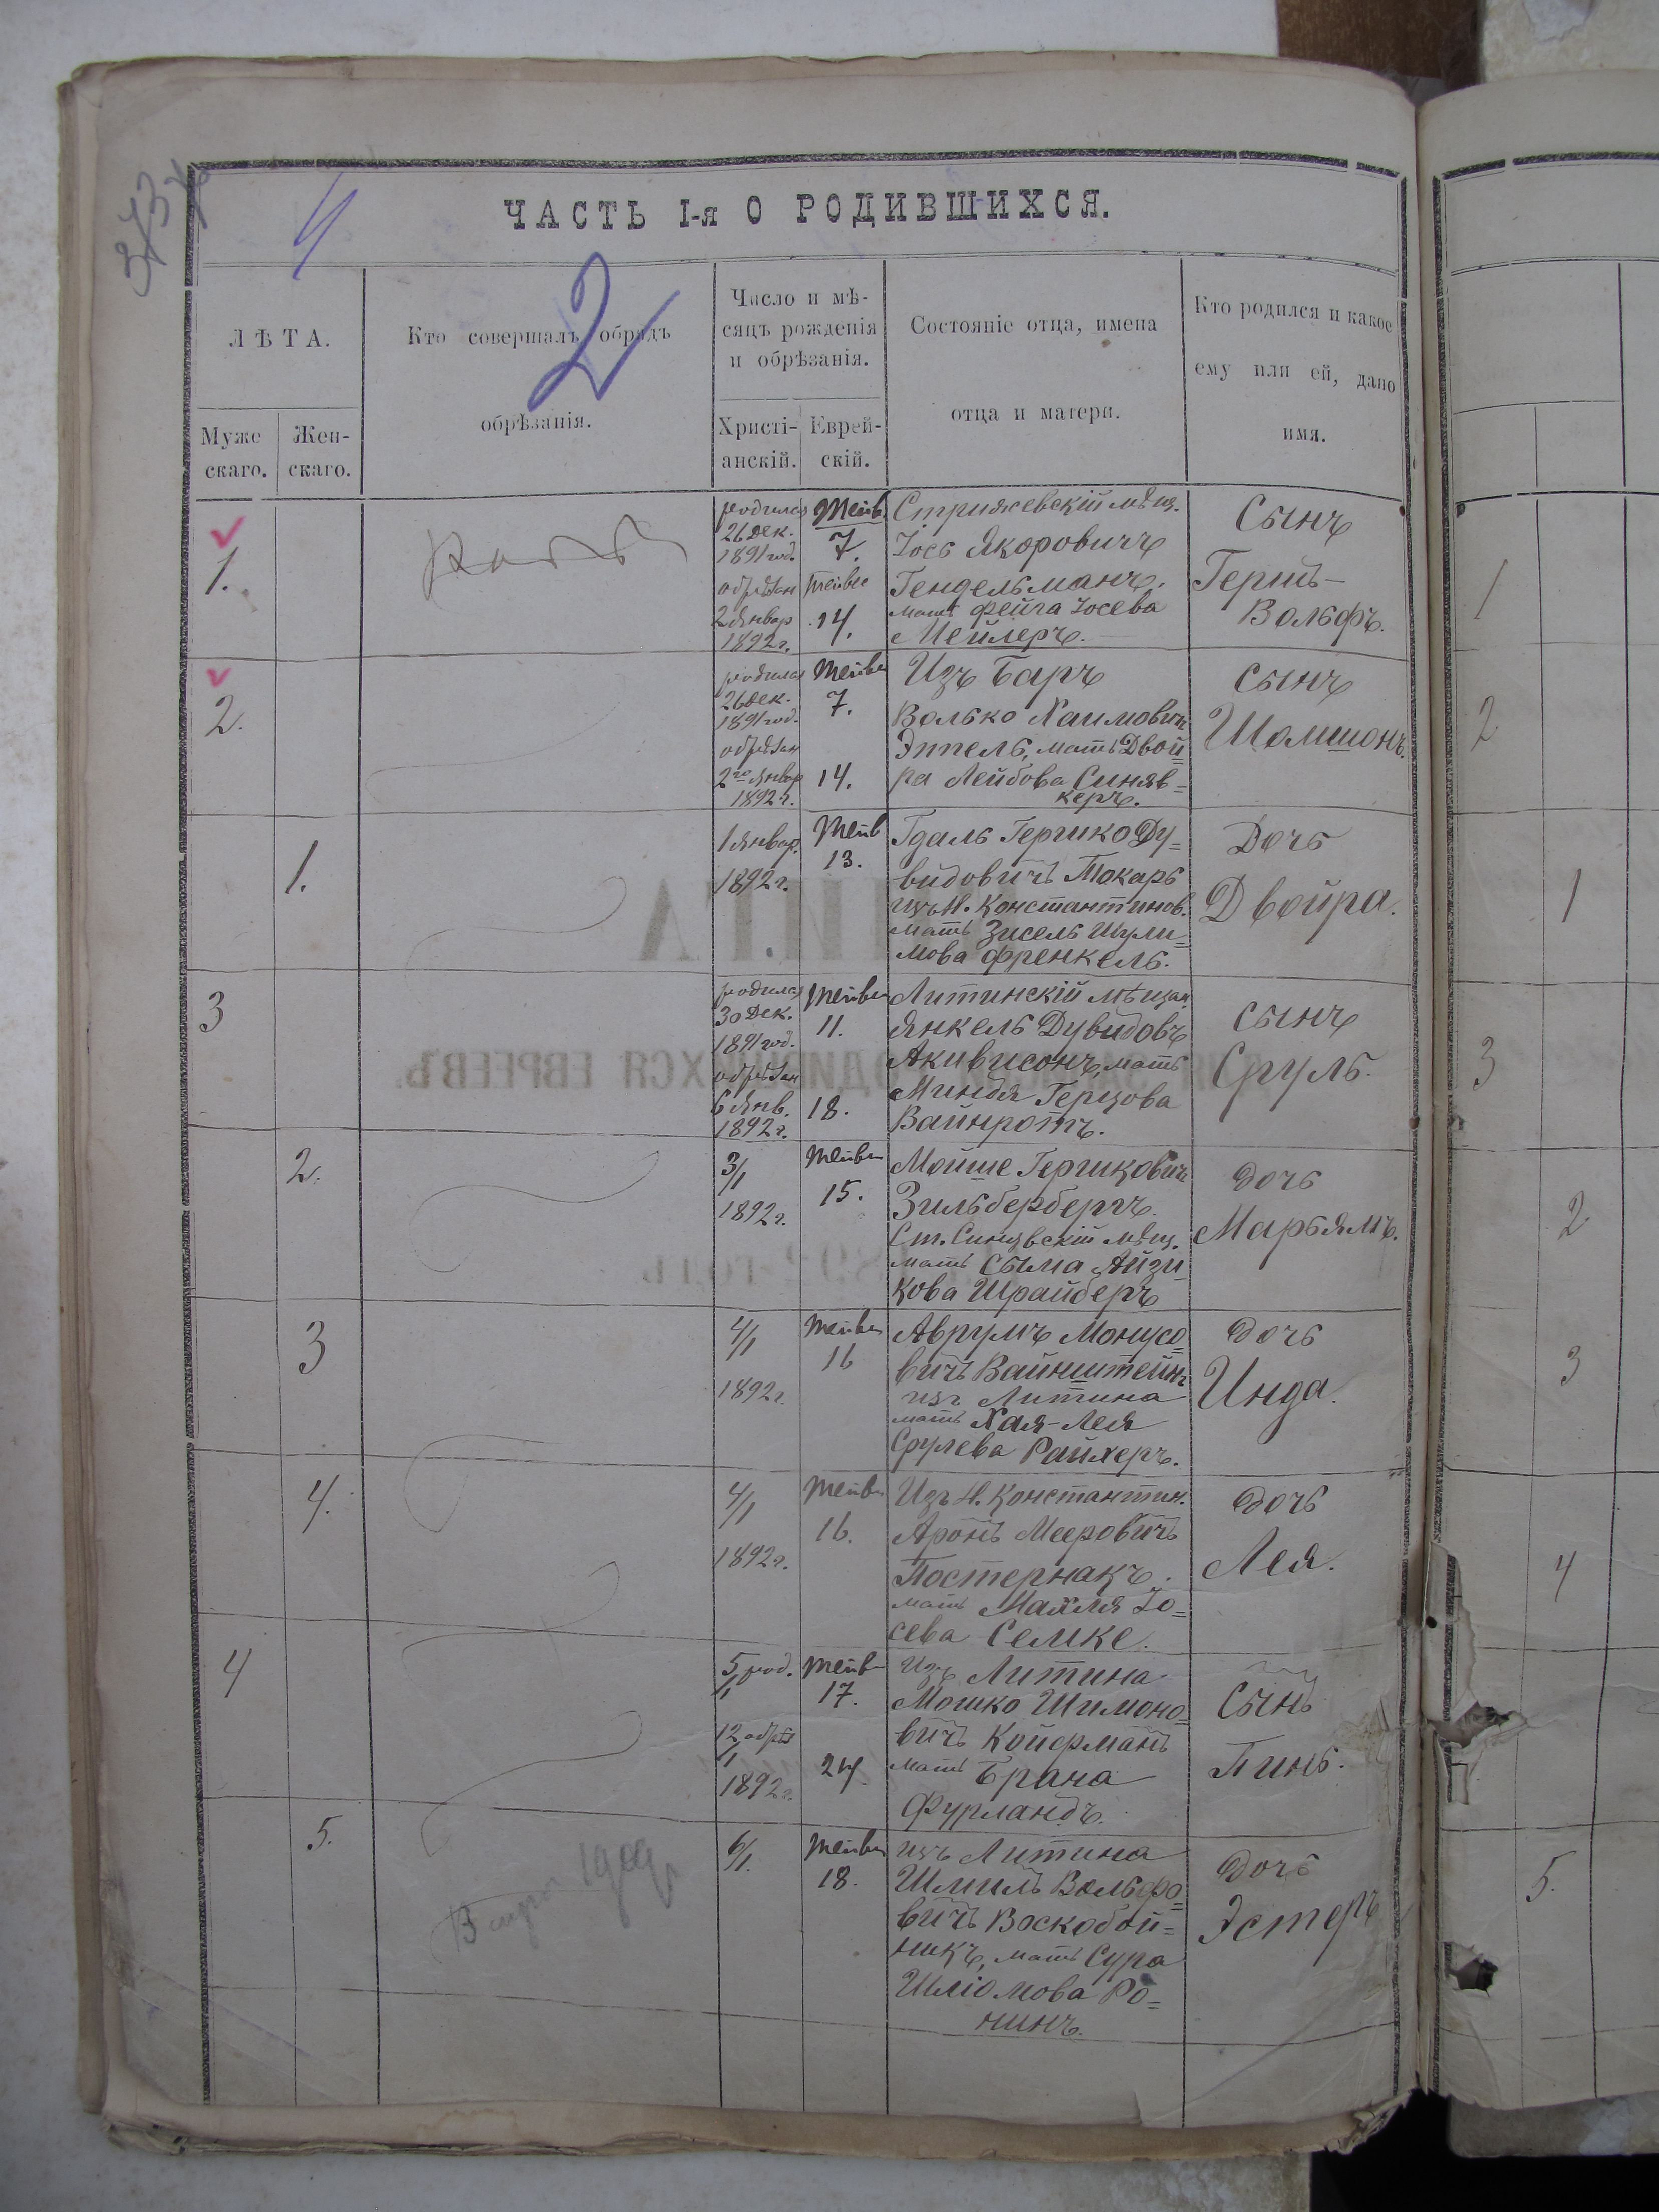 4
ЧАСТЬ I-я О РОДИВШИХСЯ.
ЛѢТА.
Муже
скаго.
Жен-
скаго.
Кто совершалъ обрядъ
обрѣзанія.
2
Число и мѣ-
сяцъ рожденія
и обрѣзанія.
Христі-
анскій.
Еврей-
скій.
Состояніе отца, имена
отца и матери.
Кто родился и какое
ему или ей, дано
имя.
1.
родился
26 Дек.
1891 год.
обрѣзан
2 Январ
1892 г.
Тейв.
7.
Тейвее
14.
Стрижевскій мѣщ.
Іось
Гендельманъ.
мать Фейга Іосева
Мейлеръ.
Сынъ
Вольфъ.
2.
родился
26 Дек.
1891 год.
обрѣзан
2го Январ
1892 г.
Тейве
7.
14.
Изъ Баръ
Волько Хаимович
Эппель, мать Двой
ра Лейбова Синяв-
керъ.
сынъ
Шомшонъ.
1.
1 Январ.
1892 г.
Тейв
13.
Гдаль Гершко Ду-
видовичъ Токарь
изъ Н. Константинов.
мать Зисель Шули-
мова Френкель.
Дочь
Двойра.
3
родился
30 Дек.
1891 год.
обрѣзан
6 Янв.
1892 г.
Тейвее
11.
18.
Литинскій мѣщан
Янкель Дувидовъ
Акивисонъ, мать
Миндя Герцова
Вайнротъ.
сынъ
Сруль.
2.
3/1
1892 г.
Тейвее
15.
Мойше Гершкович
Зильбербергъ.
Ст. Синявскій мѣщ.
мать Сыма Айзи-
кова Шрайберъ
дочь
Марьямъ.
3
4/1
1892 г.
Тейвее
16
Аврумъ Монусо-
вичъ Вайнштейнъ
изъ Литина
мать Хая-Лея
Срулева Райхеръ.
дочь
Инда.
4.
4/1
1892 г.
Тейве
16.
Изъ Н. Константин.
Аронъ Мееровичъ
Постернакъ.
мать Махля Іо-
сева Семке.
дочь
Лея.
4
5/1 род.
12/1 обрѣз
1892 г.
Тейве
17.
24.
Изъ Литина
Мошко Шимоно-
вичъ Койфманъ
мать Брана
Фурландъ.
Сынъ
Пинь.
5.
6/1.
Тейвее
18.
изъ Литина
Шмиль Вольфо-
вичъ Воскобой-
никъ, мать Сура
Шліомова Ро-
нинъ.
дочь
Эстеръ
1
2
1
3
2
3
4
5.